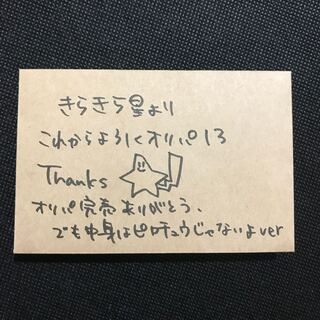 きらきら星より
これからよろしくオリパ13
Thanks
オリパ完売ありがとう、
でも中身はピカチュウじゃないよver